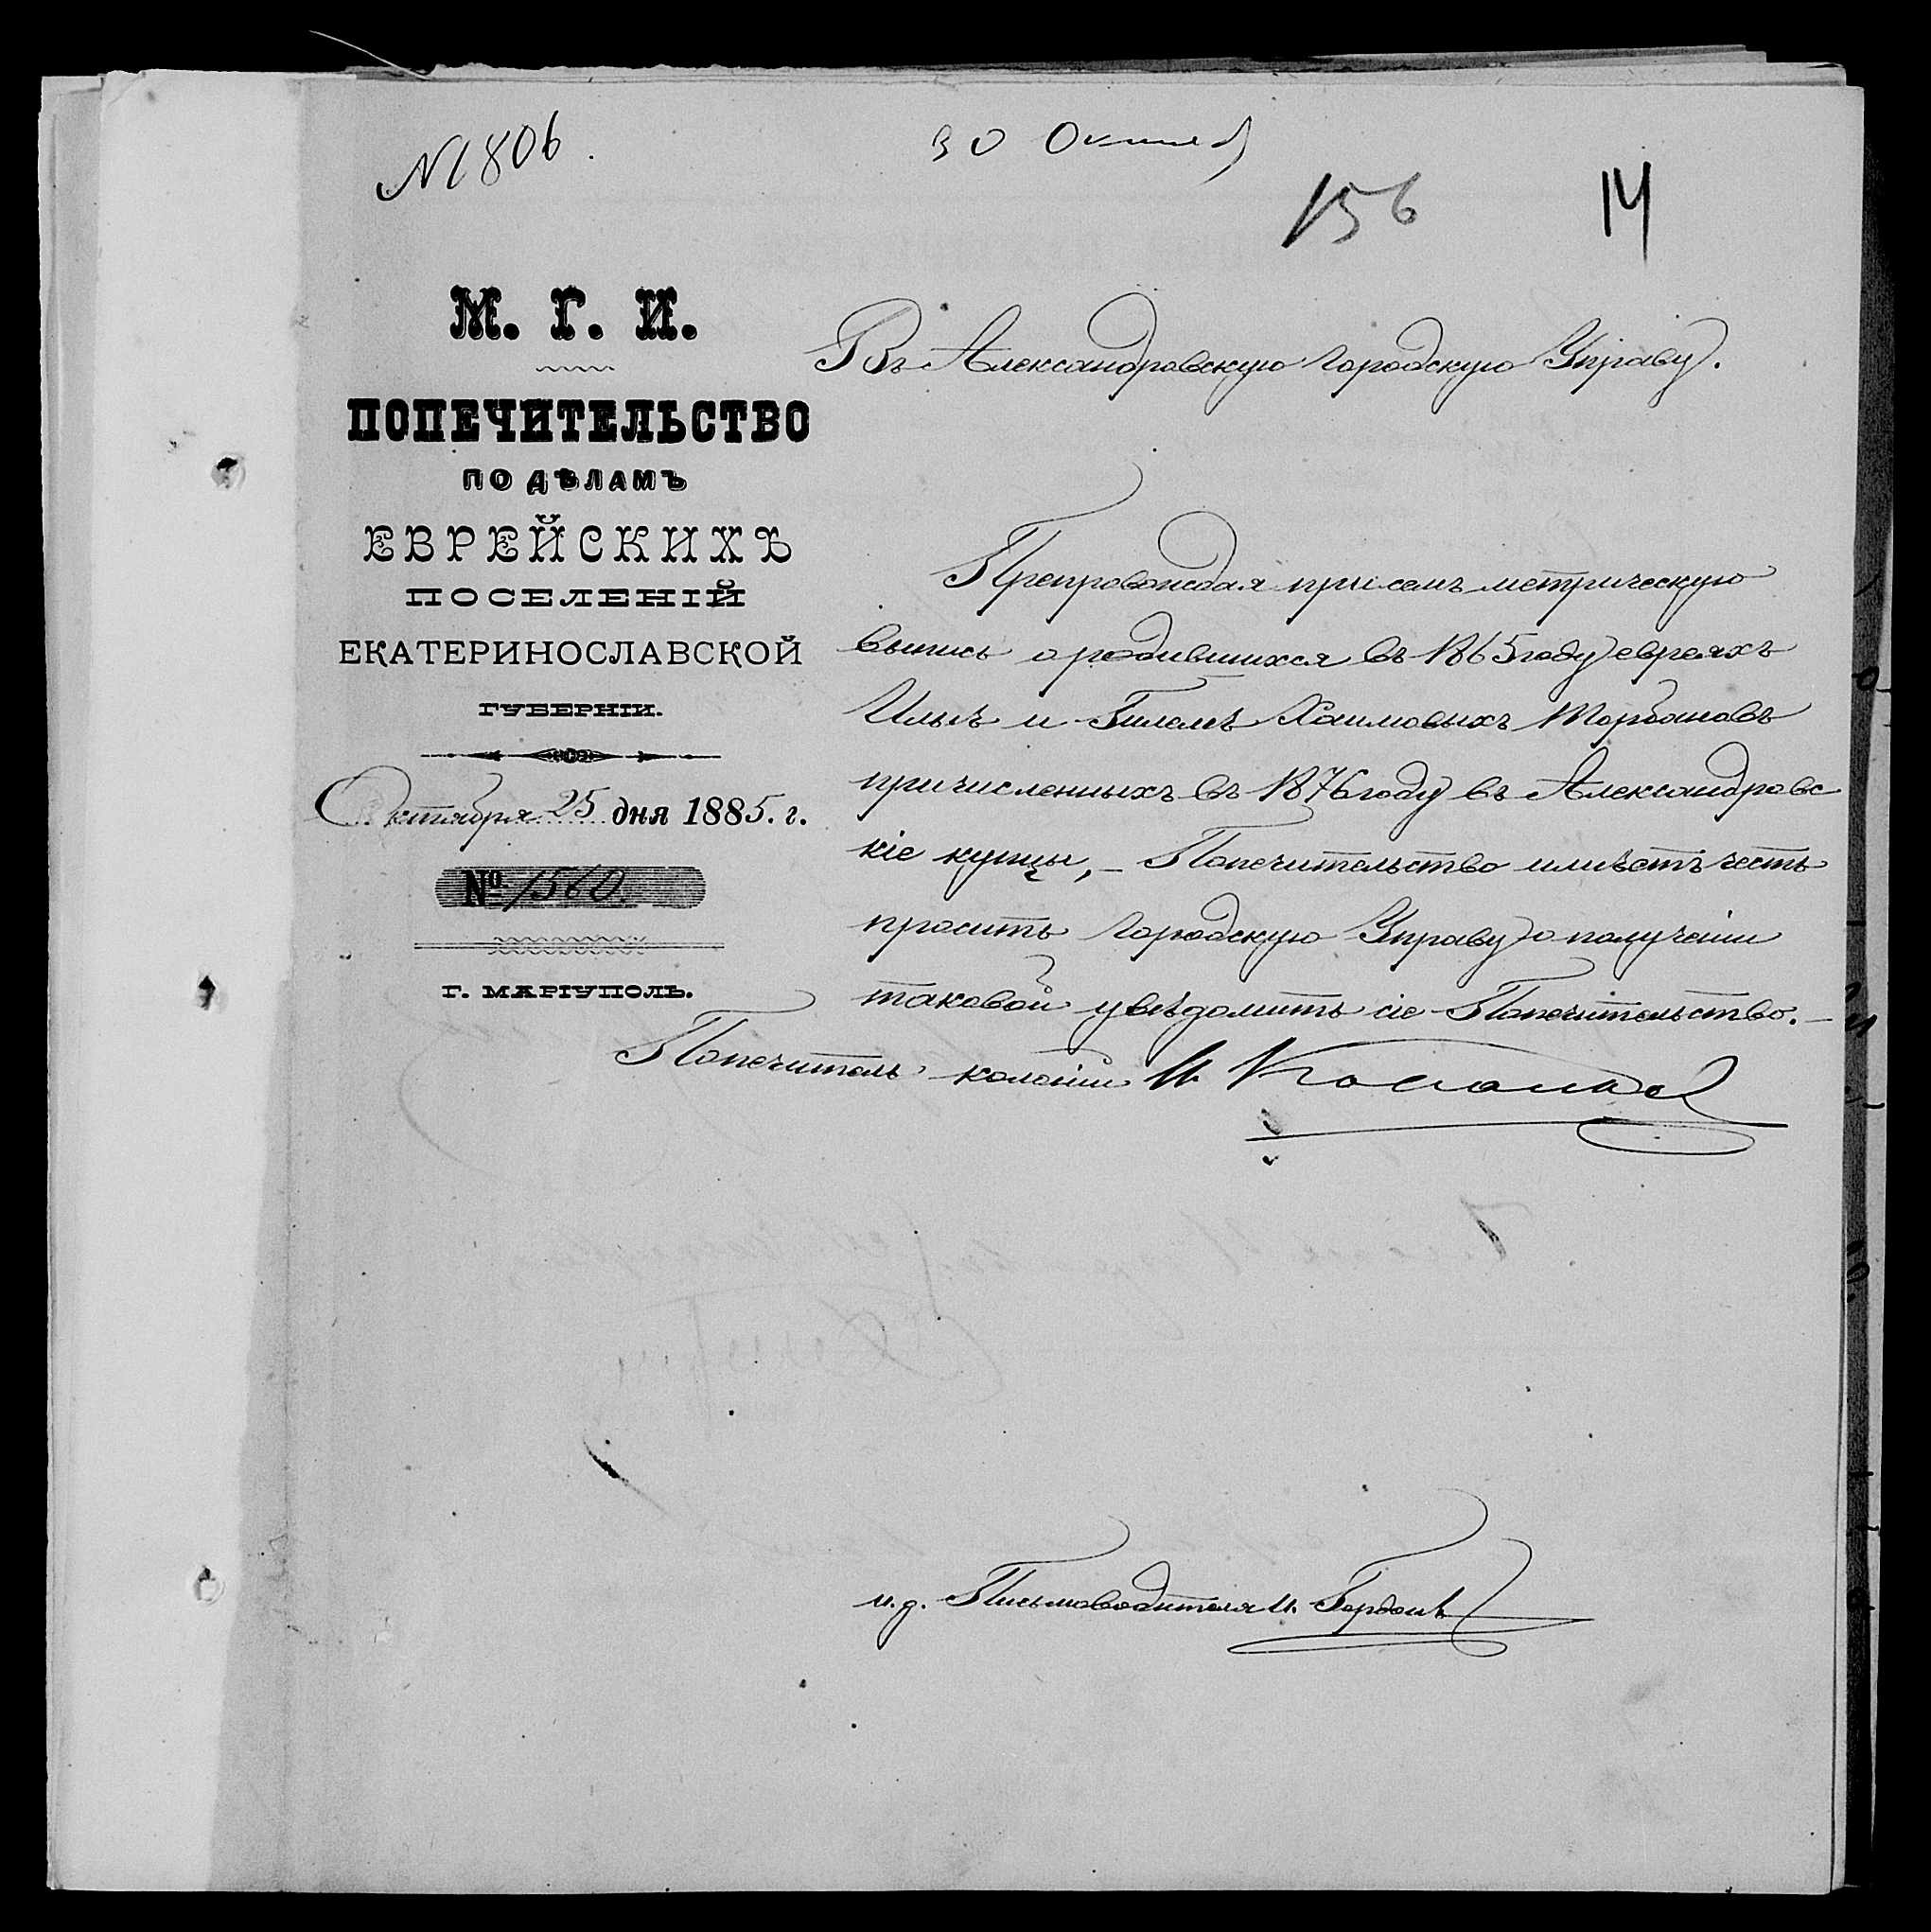 № 1806.
30 Октяб
156
14
М. Г. И.
ПОПЕЧИТЕЛЬСТВО
ПО ДѢЛАМЪ
ЕВРЕЙСКИХЪ
ПОСЕЛЕНІЙ
ЕКАТЕРИНОСЛАВСКОЙ
ГУБЕРНІИ.
Октября 25 дня 1885. г.
№ 1560.
Г. МАРІУПОЛЬ.
Въ Александровскую городскую Управу.
Препровождая при семъ метрическую
выпись о родившихся въ 1865 году евреяхъ
Ильѣ и Хаимовыхъ
причисленныхъ въ 1876 году въ Александровс
кіе купцы, – Попечительство имѣетъ честь
просить городскую Управу о полученіи
таковой увѣдомить сіе Попечительство. –
Попечитель колоніи И
и. д. Письмоводителя И. Гордонъ